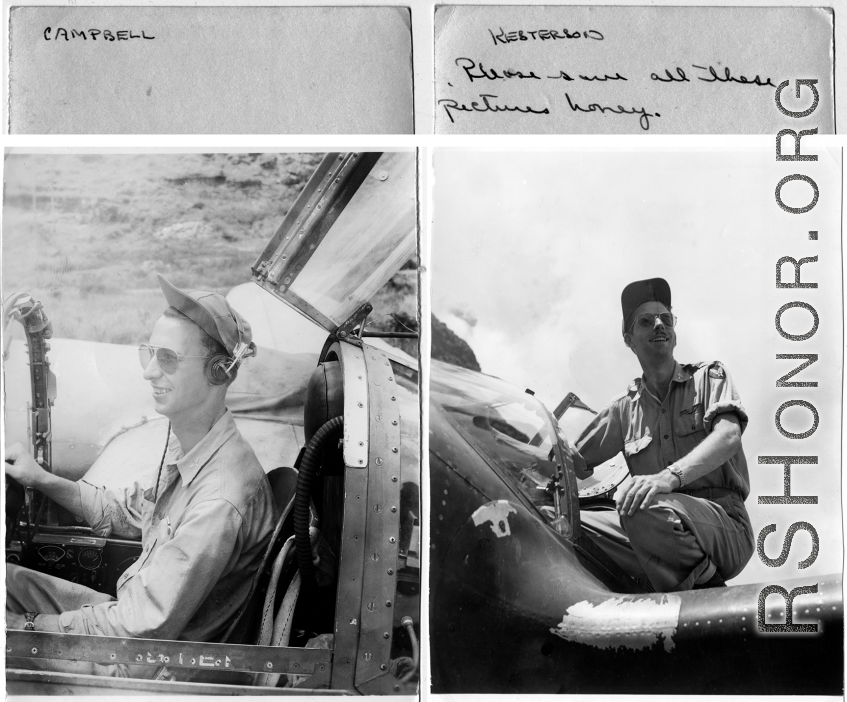 CAMPBELL
KESTERSON
Please save all these
pictures honey.
RSHONOR.ORG